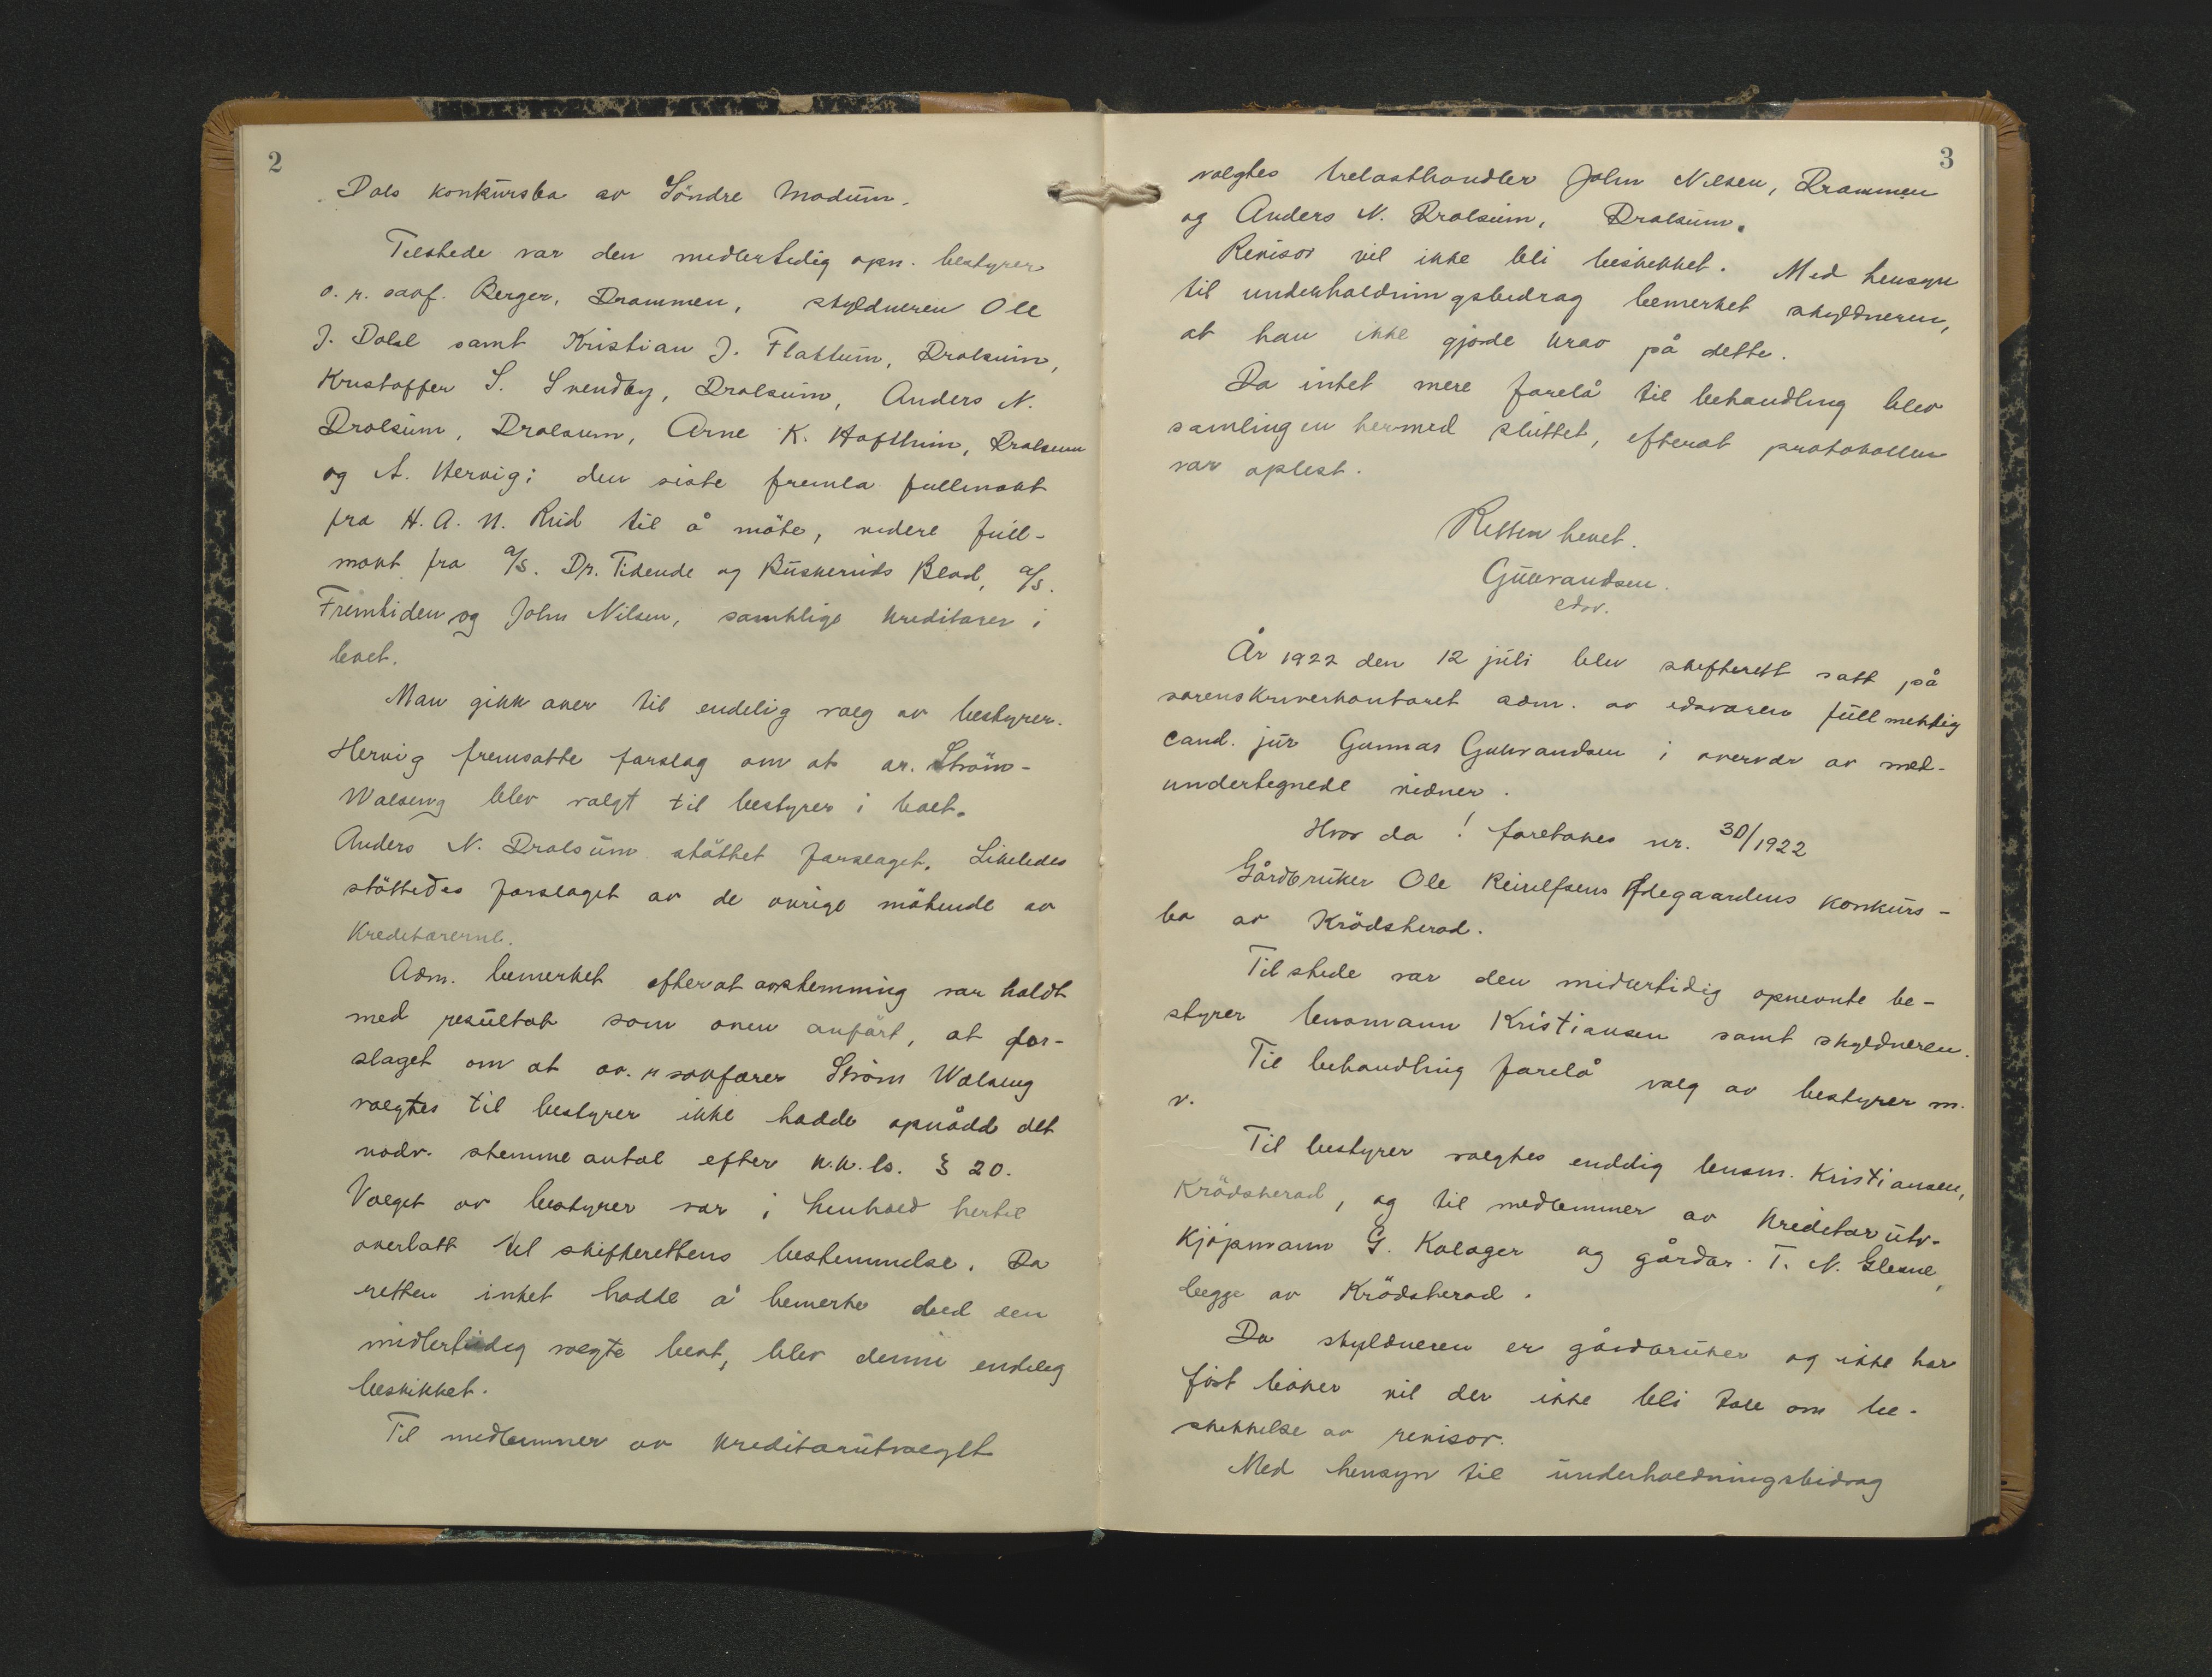 2
Dals konkursbo av Söndre Modum.
Tilstede var den midlertidig opn. bestyrer
o. r. sakf. Berger, Drammen, skyldneren Ole
J. Dahl samt Kristian J. Flattum, Drolsum,
Kristoffer S. Svendby, Drolsum, Anders N.
Drolsum, Drolsum, Arne K. Hafthun, Drolsum
og A. Hervig; den siste fremla fullmakt
fra H. A. N. Rud til å möte, videre full-
makt fra A/S. Dr. Tidende og Buskeruds Blad, A/S.
Fremtiden og John Nilsen, samtlige kreditorer i
boet.
Man gikk over til endelig valg av bestyrer.
Hervig fremsatte forslag om at or. Ström-
Walseng blev valgt til bestyrer i boet.
Anders N. Drolsum stöttet forslaget. Likeledes
stöttedes forslaget av de övrige mötende av
kreditorerne.
Adm. bemerket efterat avstemning var holdt
med resultat som oven anfört, at for-
slaget om at o. r sakförer Ström Walseng
valgtes til bestyrer ikke hadde opnådd det
nödv. stemmeantal efter k.k.l. § 20.
Valget av bestyrer var i henhold hertil
overlatt til skifterettens bestemmelse. Da
retten intet hadde å bemerke ved den
midlertidig valgte best, blev denne endelig
beskikket.
Til medlemmer av kreditorutvalget
3
valgtes trelasthandler John Nilsen, Drammen
og Anders N. Drolsum, Drolsum.
Revisor vil ikke bli beskikket. Med hensyn
til underholdningsbidrag bemerket skyldneren,
at han ikke gjorde krav på dette.
Da intet mere forelå til behandling blev
samlingen hermed sluttet, efterat protokollen
var oplest.
Retten hevet.
Gulbrandsen.
edsv.
År 1922 den 12 juli blev skifterett satt på
sorenskriverkontoret adm. av edsvoren fullmektig
cand. jur Gunnar Gulbrandsen i overvær av med-
undertegnede vidner.
Hvor da! foretokes nr. 30/1922
Gårdbruker Ole Reiulfsens Ødegaardens konkurs-
bo av Krödsherad.
Tilstede var den midlertidig opnevnte be-
styrer lensmann Kristiansen samt skyldneren.
Til behandling forelå valg av bestyrer m.
v.
Til bestyrer valgtes endelig lensm. Kristiansen,
Krödsherad, og til medlemmer av kreditorutv.
Kjøpmann G. Kolager og gårdbr. T. N. Glesne,
begge av Krödsherad.
Da skyldneren er gårdbruker og ikke har
fört böker vil der ikke bli tale om be-
skikkelse av revisor.
Med hensyn til underholdningsbidrag